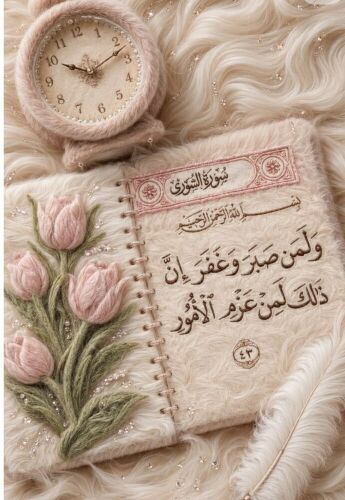 12
1
2
3
4
5
6
7
8
9
10
11
سُورَةُ الشُّورَىٰ
بِسْمِ اللَّهِ الرَّحْمَٰنِ الرَّحِيمِ
وَلَمَن صَبَرَ وَغَفَرَ إِنَّ
ذَٰلِكَ لَمِنْ عَزْمِ الْأُمُورِ
٤٣